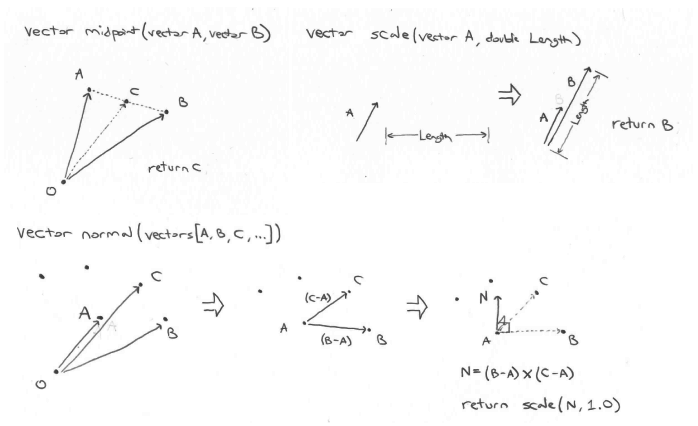 vector midpoint(vector A, vector B)
A
C
B
O
return C
vector scale(vector A, double Length)
A
Length
⇒
B
A
Length
return B
vector normal(vectors[A,B,C,...])
C
A
B
O
⇒
C
(C-A)
A
(B-A)
B
⇒
C
N
A
B
N=(B-A)×(C-A)
return scale(N,1.0)